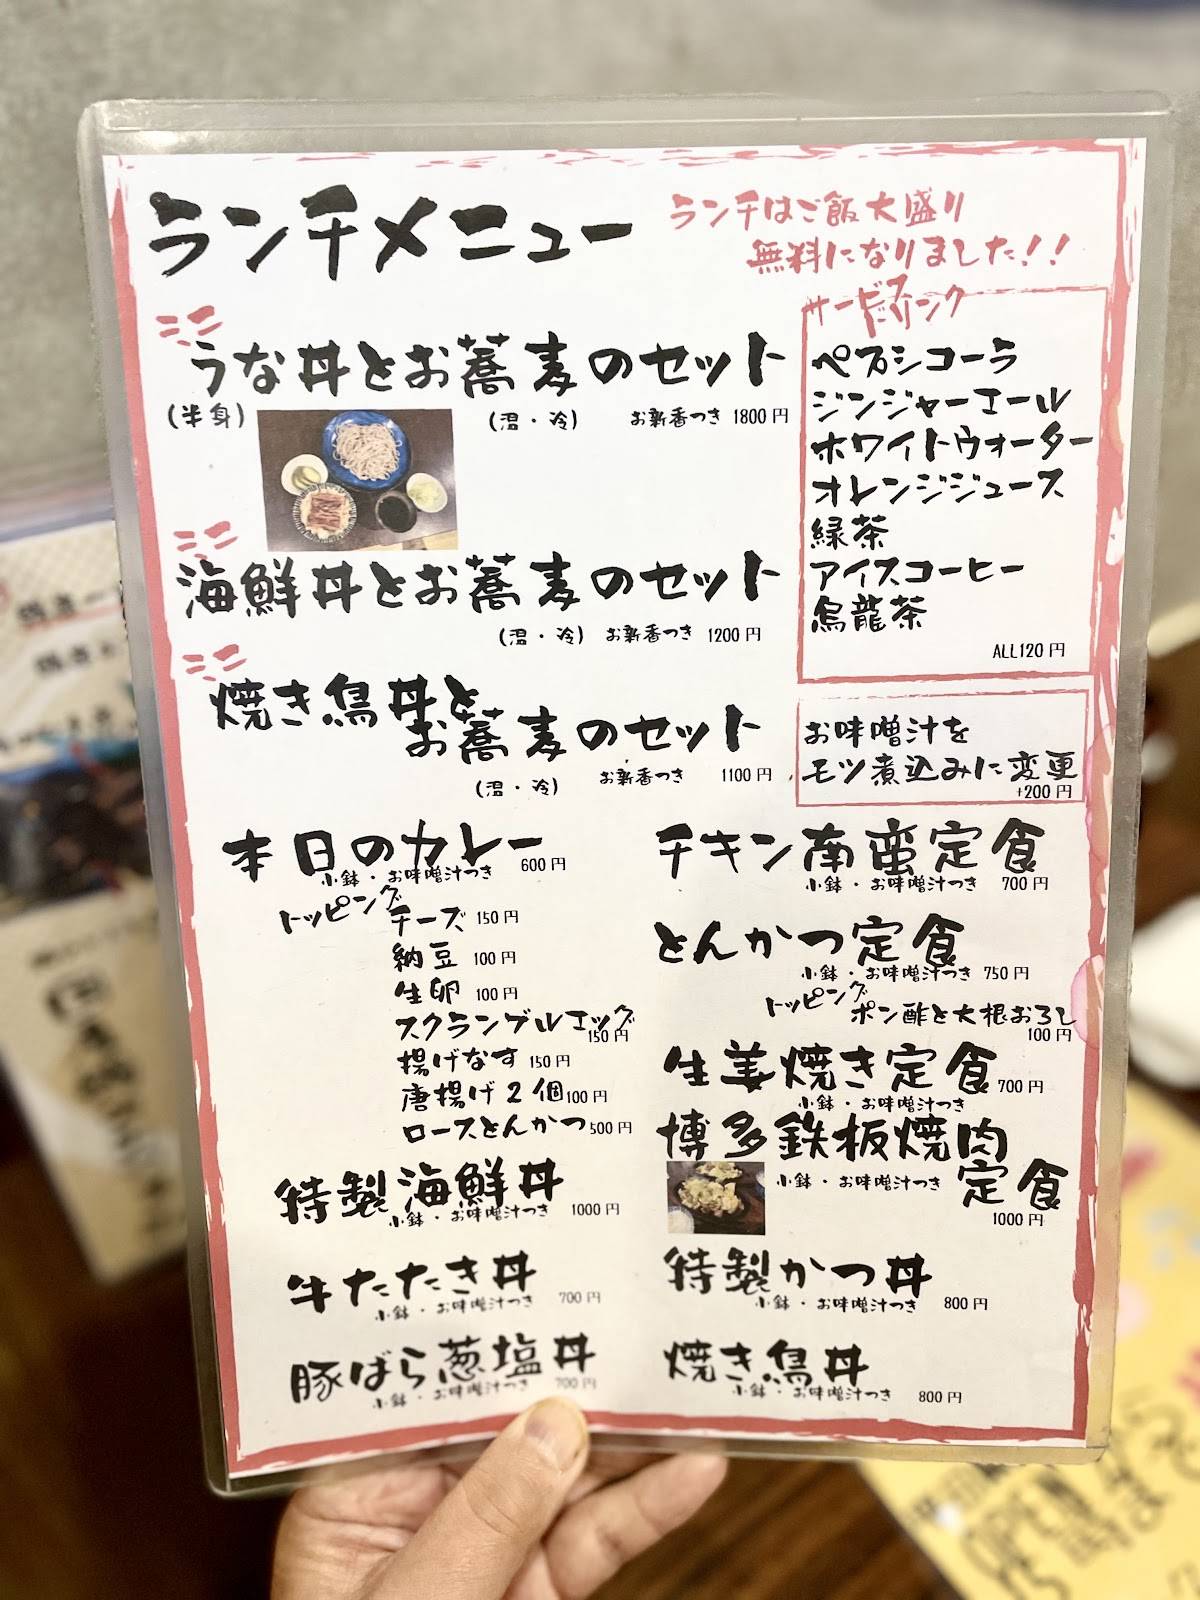 ランチメニュー
ランチはご飯大盛り
無料になりました!!
ミニ
うな丼とお蕎麦のセット
(半身)
(沼・冷) お新香つき 1800円
ミニ
海鮮丼とお蕎麦のセット
(沼・冷) お新香つき 1200円
ミニ
焼き鳥丼と
お蕎麦のセット
(沼・冷) お新香つき 1100円
サービスドリンク
ペプシコーラ
ジンジャーエール
ホワイトウォーター
オレンジジュース
緑茶
アイスコーヒー
烏龍茶
ALL120円
お味噌汁を
モツ煮込みに変更
+200円
本日のカレー
小鉢・お味噌汁つき 600円
トッピング
チーズ 150円
納豆 100円
生卵 100円
スクランブルエッグ
150円
揚げなす 150円
唐揚げ2個 100円
ロースとんかつ 500円
特製海鮮丼
小鉢・お味噌汁つき 1000円
牛たたき丼
小鉢・お味噌汁つき 700円
豚ばら葱塩丼
小鉢・お味噌汁つき 700円
チキン南蛮定食
小鉢・お味噌汁つき 700円
とんかつ定食
小鉢・お味噌汁つき 750円
トッピング
ポン酢と大根おろし
100円
生姜焼き定食 700円
小鉢・お味噌汁つき
博多鉄板焼肉
定食
小鉢・お味噌汁つき
1000円
特製かつ丼
小鉢・お味噌汁つき 800円
焼き鳥丼
小鉢・お味噌汁つき 800円
OPEN